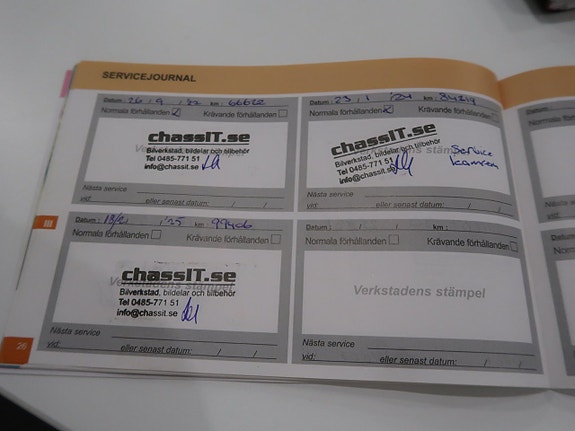 SERVICEJOURNAL
Datum : 26 / 9 / '22 km : 66622
Normala förhållanden Krävande förhållanden
chassIT.se
Bilverkstad, bildelar och tillbehör
Tel 0485-771 51
info@chassit.se
Nästa service
vid: eller senast datum: / /
Datum : 23 / 1 / '24 km : 84219
Normala förhållanden Krävande förhållanden
chassIT.se
Bilverkstad, bildelar och tillbehör
Tel 0485-771 51
info@chassit.se
Service
kamrem
Nästa service
vid: eller senast datum: / /
Datum : / '25 km : 99406
Normala förhållanden Krävande förhållanden
chassIT.se
Verkstadens stämpel
Bilverkstad, bildelar och tillbehör
Tel 0485-771 51
info@chassit.se
Nästa service
vid: eller senast datum: / /
Datum : / / km :
Normala förhållanden Krävande förhållanden
Verkstadens stämpel
Nästa service
vid: eller senast datum: / /
III
26